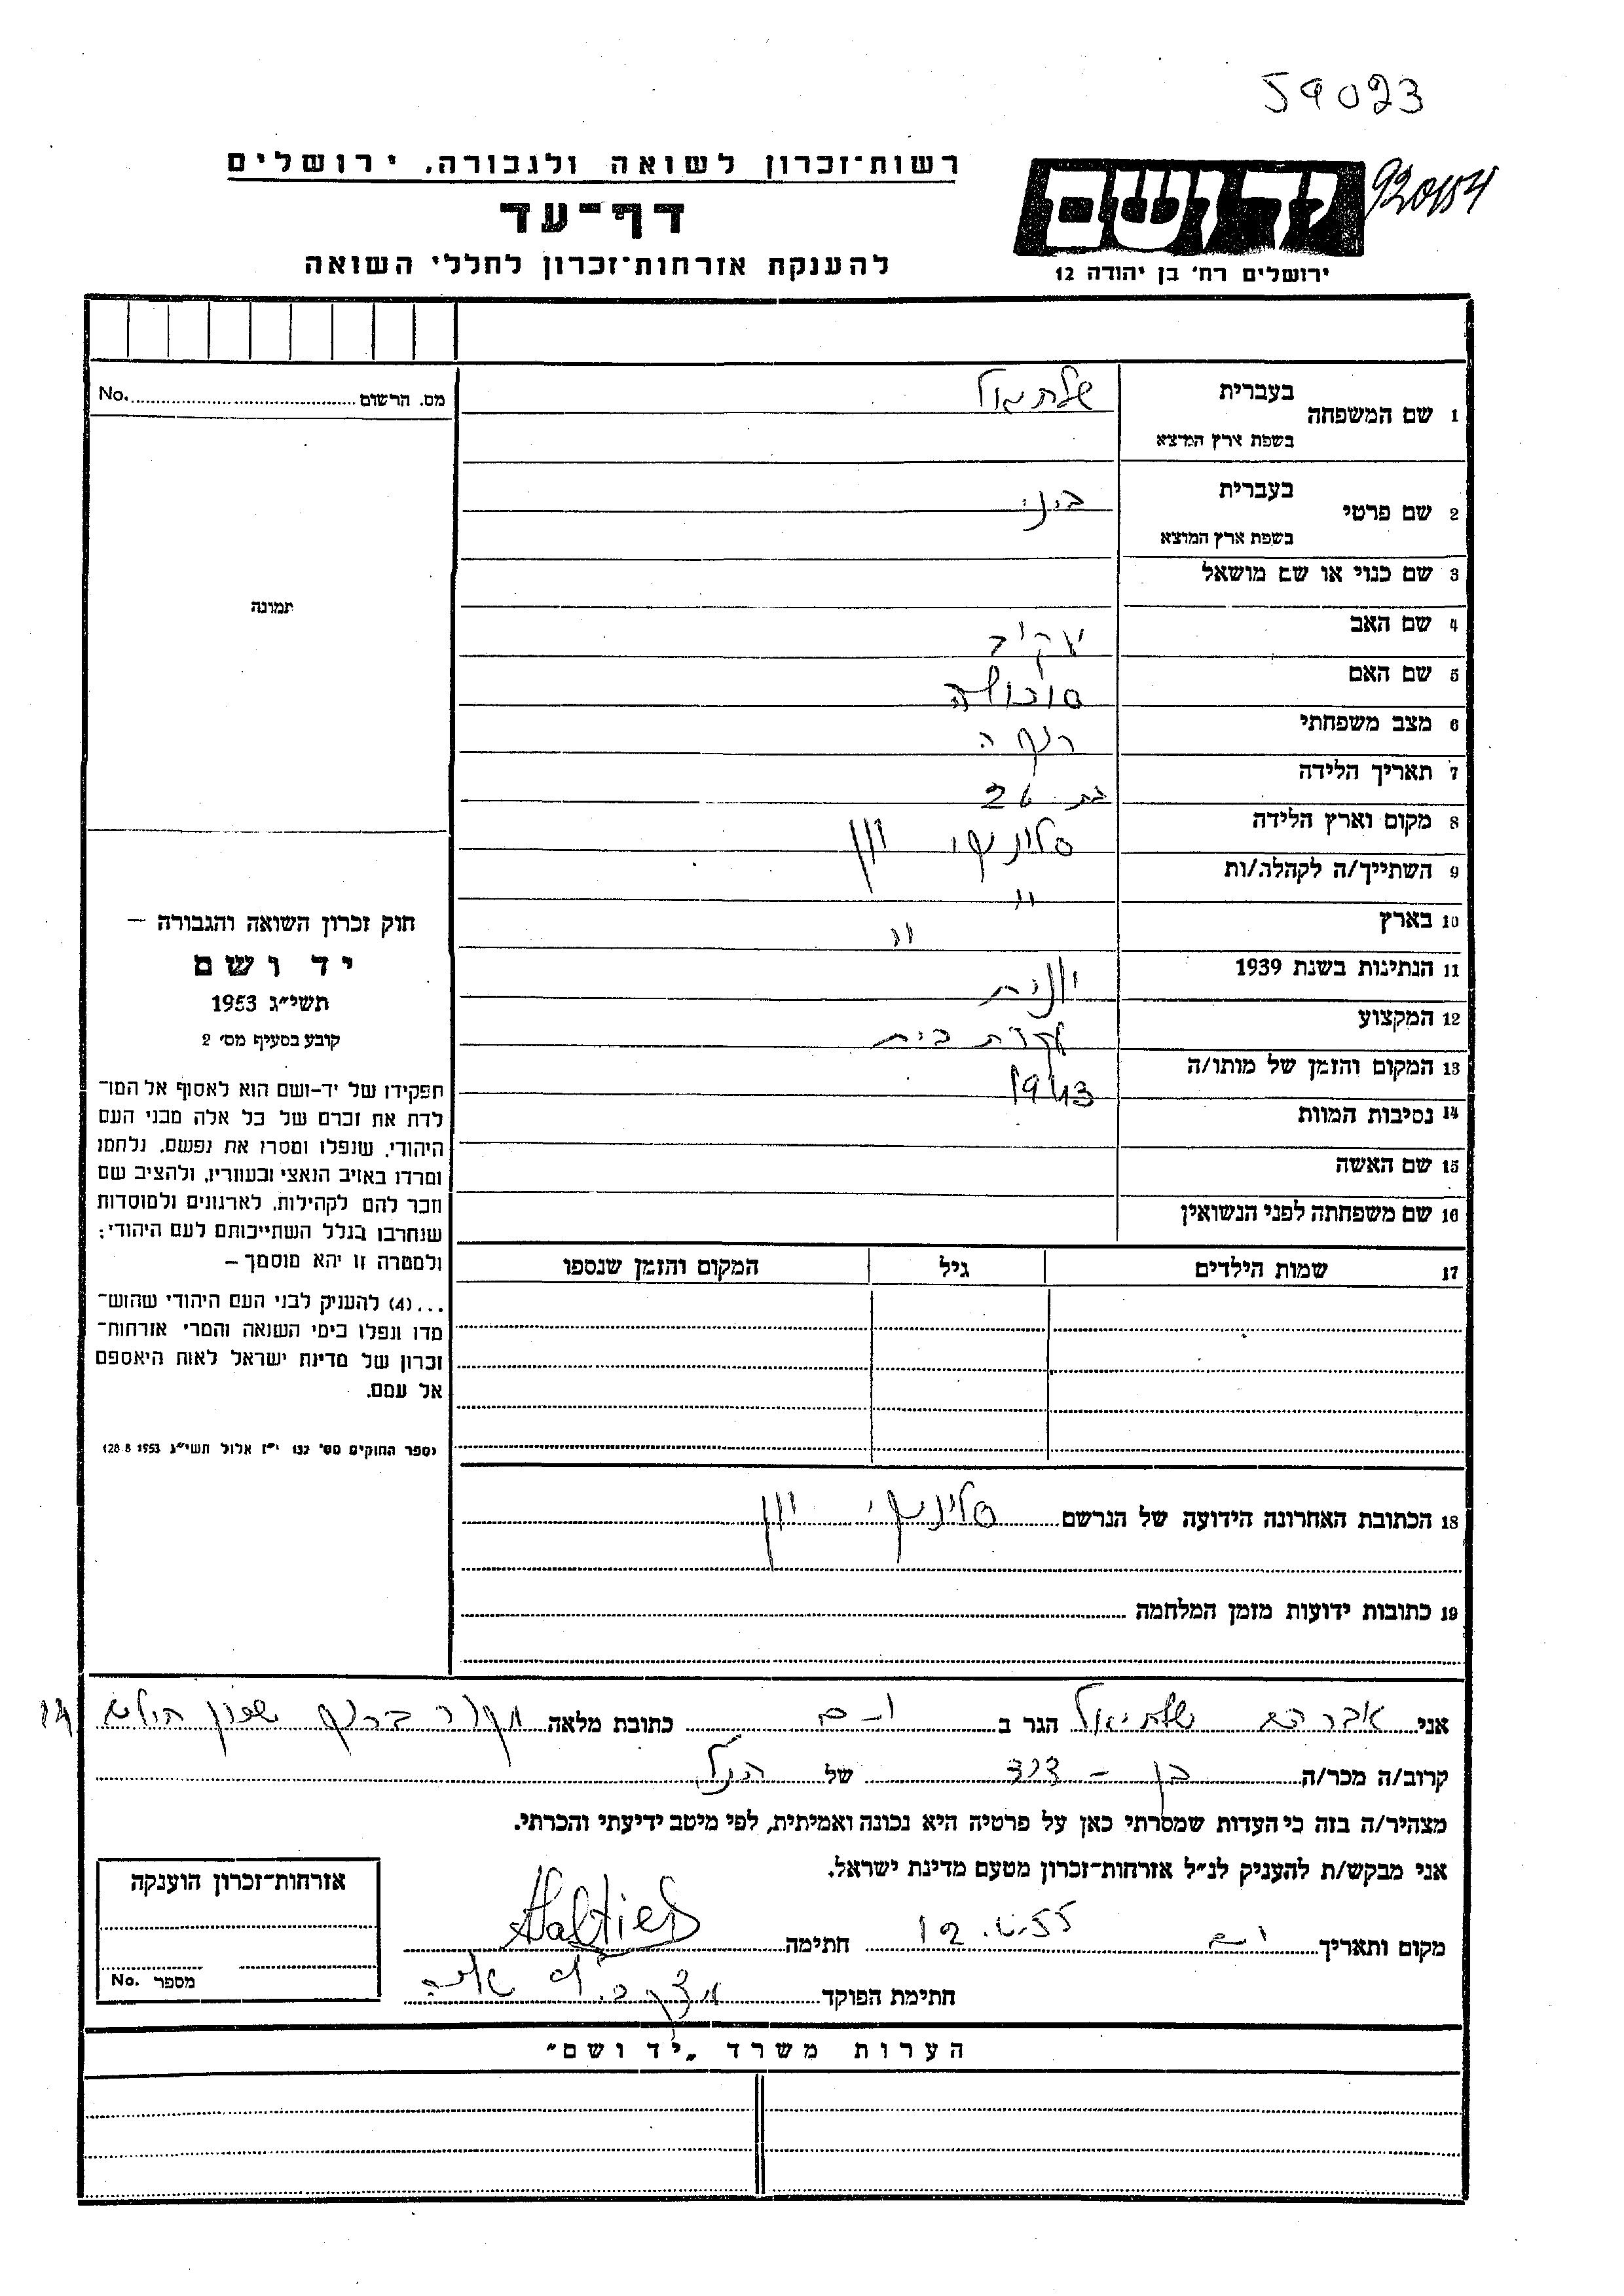 59023
רשות־זכרון לשואה ולגבורה. ירושלים
920154
יד ושם
דף־עד
להענקת אזרחות־זכרון לחללי השואה
ירושלים רח' בן יהודה 12
מס. הרשום No.
1 שם המשפחה בעברית שלתיאל
בשפת ארץ המוצא
2 שם פרטי בעברית
בשפת ארץ המוצא
3 שם כנוי או שם מושאל
תמונה
4 שם האב יעקב
5 שם האם
6 מצב משפחתי רוקה
7 תאריך הלידה בת 26
8 מקום וארץ הלידה סלוניקי יון
9 השתייך/ה לקהלה/ות "
10 בארץ "
11 הנתינות בשנת 1939 יונית
12 המקצוע עקרת בית
13 המקום והזמן של מותו/ה 1943
14 נסיבות המוות
15 שם האשה
16 שם משפחתה לפני הנשואין
17 שמות הילדים גיל המקום והזמן שנספו
חוק זכרון השואה והגבורה –
יד ושם
תשי"ג 1953
קובע בסעיף מס' 2
תפקידו של יד-ושם הוא לאסוף אל המו־
לדת את זכרם של כל אלה מבני העם
היהודי, שנפלו ומסרו את נפשם, נלחמו
ומרדו באויב הנאצי ובעוזריו, ולהציב שם
וזכר להם לקהילות, לארגונים ולמוסדות
שנחרבו בגלל השתייכותם לעם היהודי;
ולמטרה זו יהא מוסמך –
...(4) להעניק לבני העם היהודי שהוש־
מדו ונפלו בימי השואה והמרי אזרחות־
זכרון של מדינת ישראל לאות היאספם
אל עמם.
(ספר החוקים מס' 132 י"ז אלול תשי"ג 28.8.1953)
18 הכתובת האחרונה הידועה של הנרשם סלוניקי יון
19 כתובות ידועות מזמן המלחמה
אני אברהם שלתיאל הגר ב כתובת מלאה
קרוב/ה מכר/ה בן - דוד של הנ"ל
מצהיר/ה בזה כי העדות שמסרתי כאן על פרטיה היא נכונה ואמיתית, לפי מיטב ידיעתי והכרתי.
אני מבקש/ת להעניק לנ"ל אזרחות־זכרון מטעם מדינת ישראל.
מקום ותאריך 55 חתימה Saltiel
חתימת הפוקד
אזרחות־זכרון הוענקה
מספר No.
הערות משרד „יד ושם"